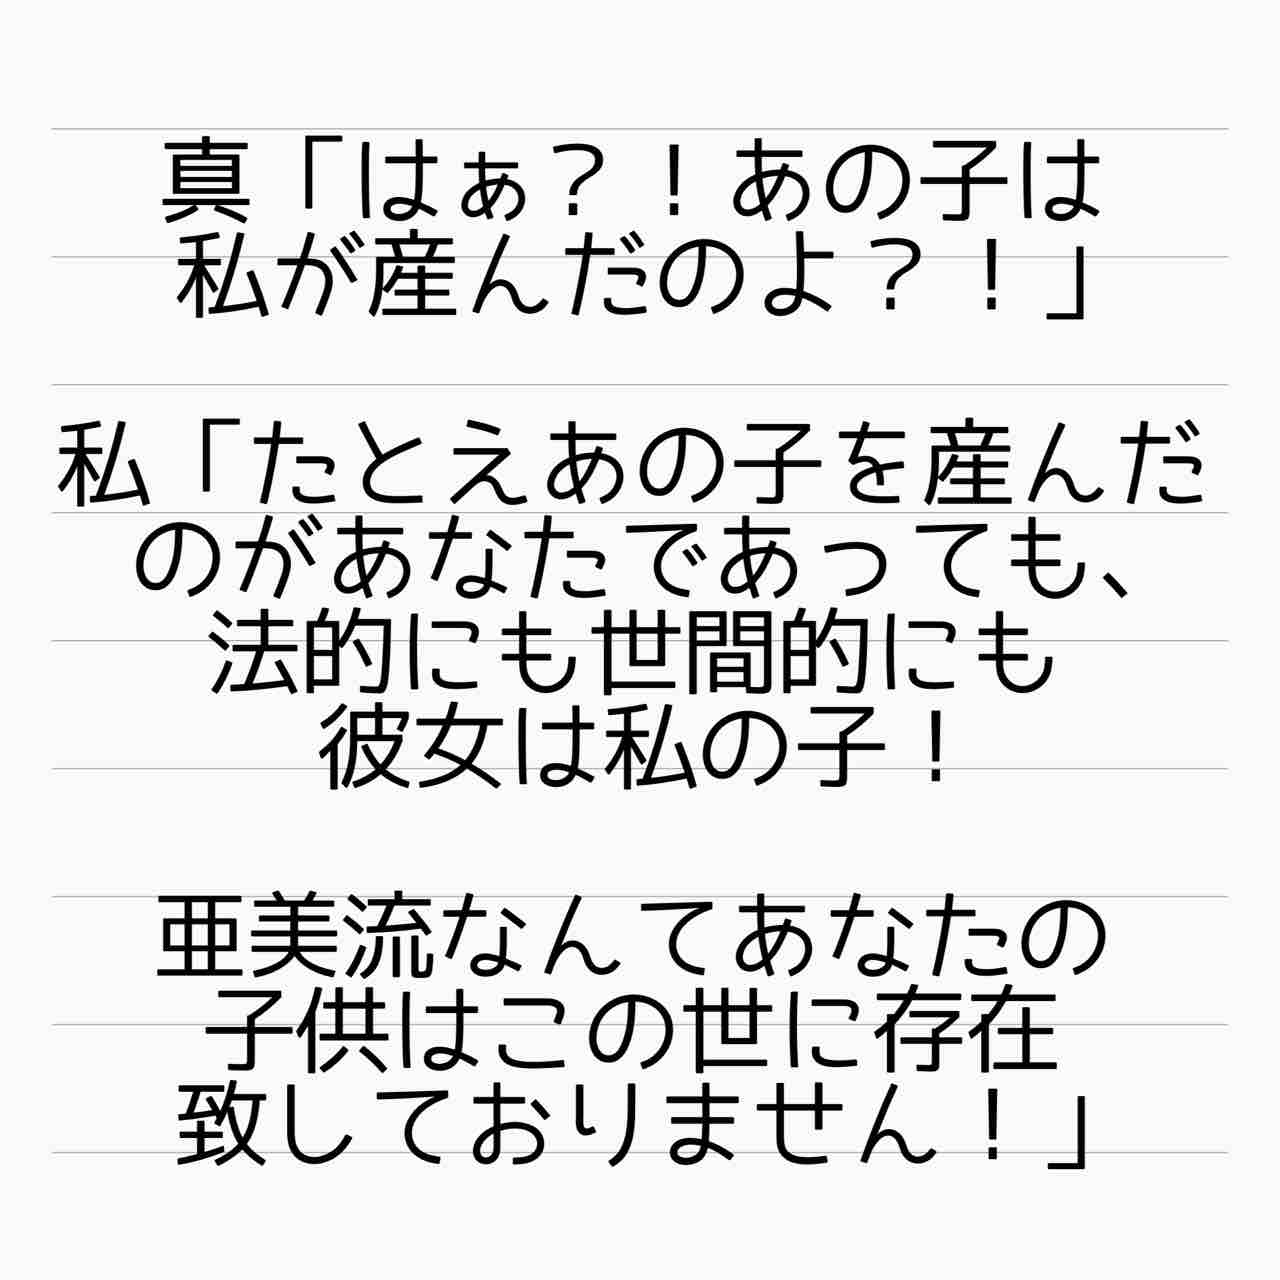 真「はぁ？！あの子は
私が産んだのよ？！」
私「たとえあの子を産んだ
のがあなたであっても、
法的にも世間的にも
彼女は私の子！
亜美流なんてあなたの
子供はこの世に存在
致しておりません！」